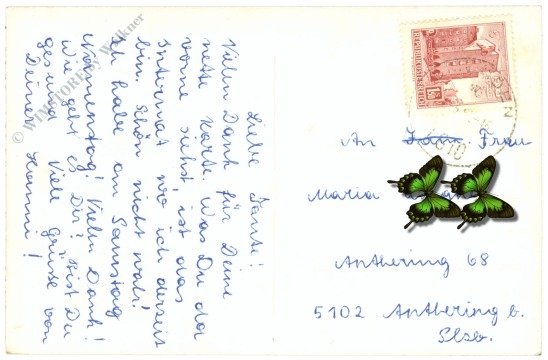 Liebe Tante!
Vielen Dank für Deine
nette Karte. Was Du da
vorne siehst, ist das
Internat, wo ich derzeit
bin. Schön, nicht wahr!
Ich habe am Samstag
Namenstag! Vielen Dank!
Wie geht es Dir? Bist Du
gesund? Viele Grüsse von
Deiner Hanni!
An Frau
Maria
Anthering 68
5102 Anthering b.
Slzb.
REPUBLIK
ÖSTERREICH
© WIENTOREN by Walkner